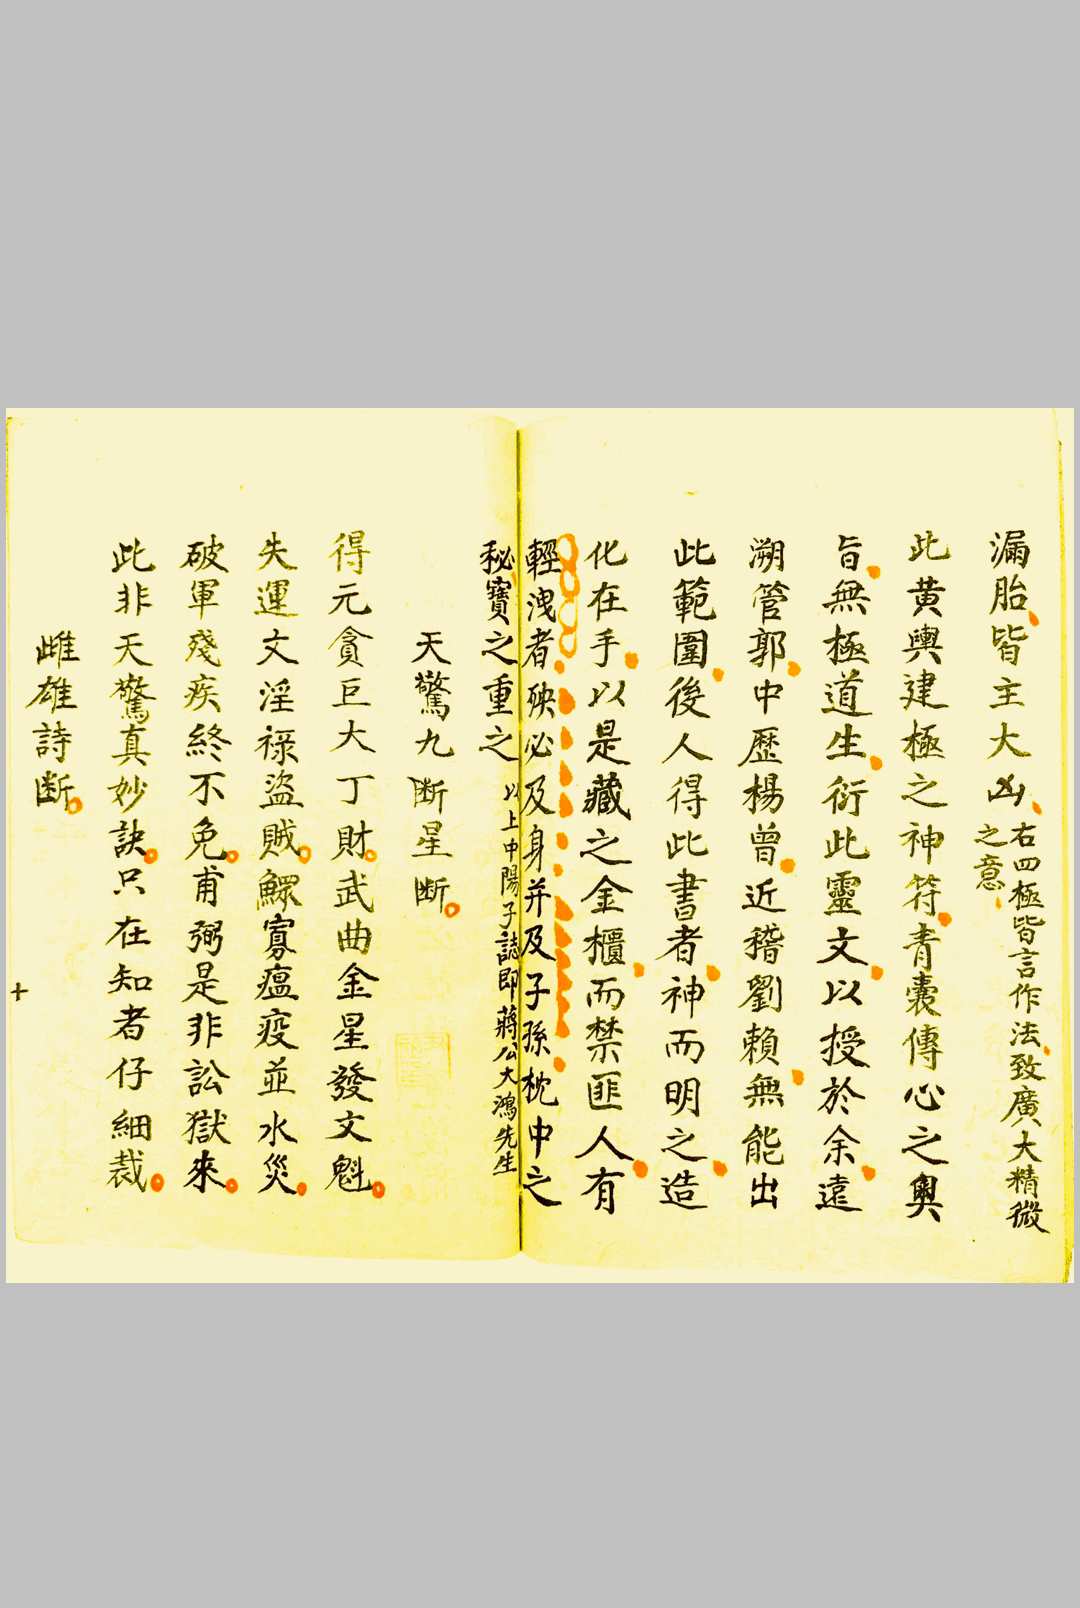 漏胎皆主大凶右四極皆言作法致廣大精微
之意
此黄輿建極之神符青囊傳心之奧
旨無極道生衍此靈文以授於余遠
溯管郭中歷楊曾近稽劉賴無能出
此範圍後人得此書者神而明之造
化在手以是藏之金櫃而禁匪人有
輕洩者殃必及身并及子孫枕中之
秘寶之重之以上中陽子誌即蔣公大鴻先生
天驚九断星断
得元貪巨大丁財武曲金星發文魁
失運文淫禄盜賊鰥寡瘟疫並水災
破軍殘疾終不免甫弼是非訟獄來
此非天驚真妙訣只在知者仔細裁
雌雄詩断